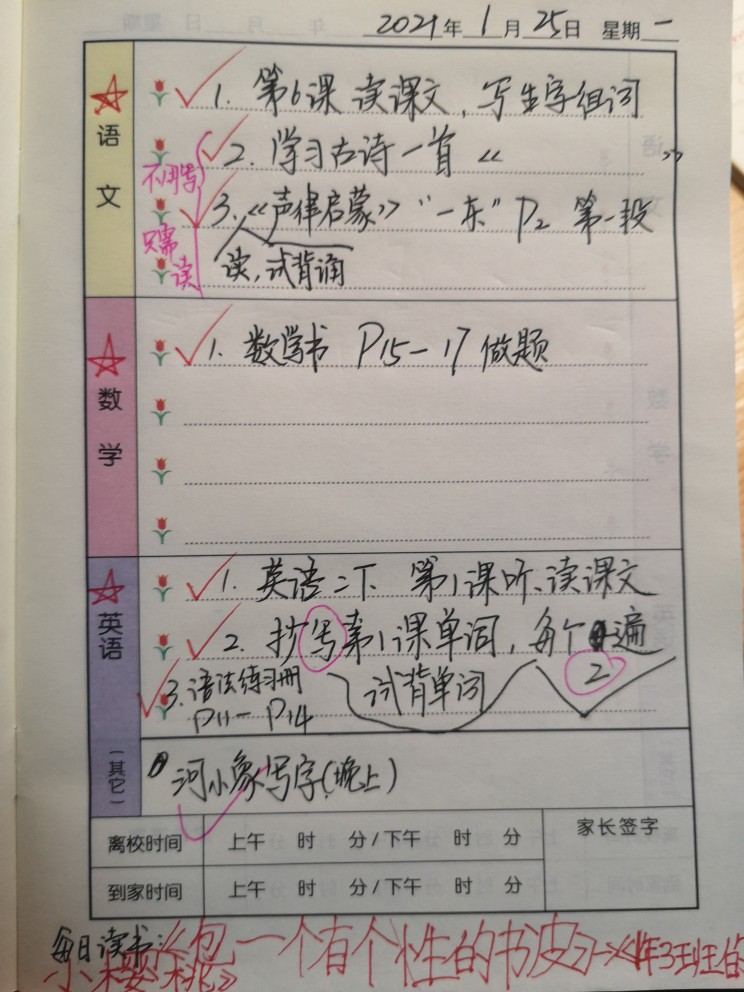 2021年1月25日 星期一
语文
1. 第6课 读课文, 写生字组词
2. 学习古诗一首《 》
不用写
3.《声律启蒙》"一东" P2 第一段
只需读
读,试背诵
数学
1. 数学书 P15-17 做题
英语
1. 英语二下 第1课听、读课文
2. 抄写第1课单词, 每个 遍
2
3. 语法练习册
P11-P14
试背单词
(其它)
河小象写字(晚上)
离校时间 上午 时 分/下午 时 分 家长签字
到家时间 上午 时 分/下午 时 分
每日读书:《包一个有个性的书皮》→《1年3班
小樱桃》